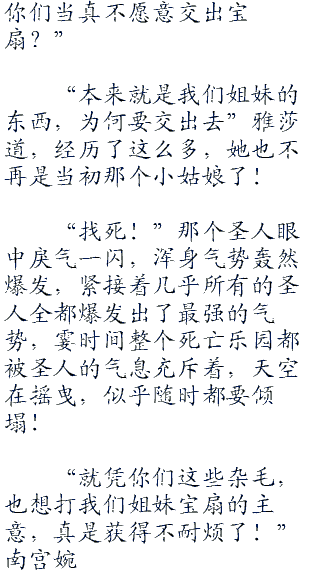 你们当真不愿意交出宝
扇？”
“本来就是我们姐妹的
东西，为何要交出去”雅莎
道，经历了这么多，她也不
再是当初那个小姑娘了！
“找死！”那个圣人眼
中戾气一闪，浑身气势轰然
爆发，紧接着几乎所有的圣
人全都爆发出了最强的气
势，霎时间整个死亡乐园都
被圣人的气息充斥着，天空
在摇曳，似乎随时都要倾
塌！
“就凭你们这些杂毛，
也想打我们姐妹宝扇的主
意，真是获得不耐烦了！”
南宫婉